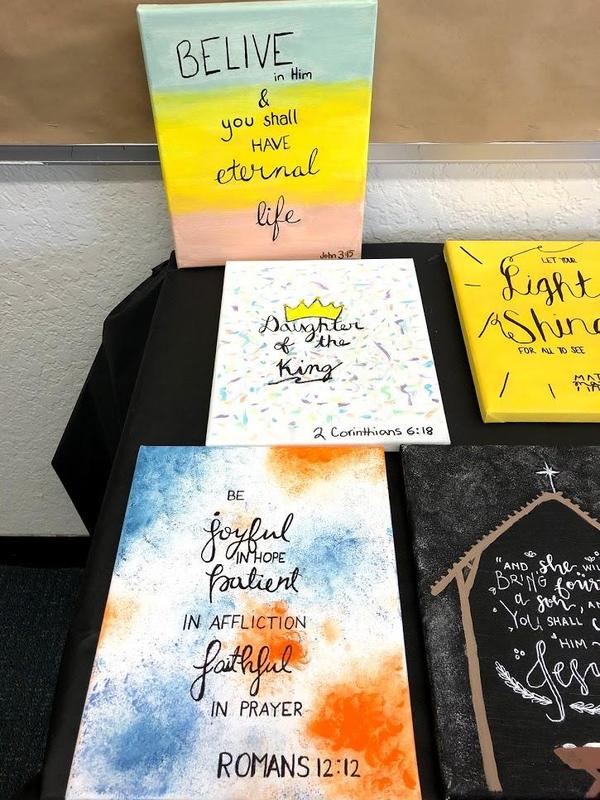 BELIVE
in Him
&
you shall
HAVE
eternal
life
John 3:15
Daughter
of the
King
2 Corinthians 6:18
LET YOUR
Light
Shine
FOR ALL TO SEE
BE
joyful
IN HOPE
patient
IN AFFLICTION
faithful
IN PRAYER
ROMANS 12:12
"AND she WIL
BRING four
a son, AN
YOU SHALL C
HIM
Jesu